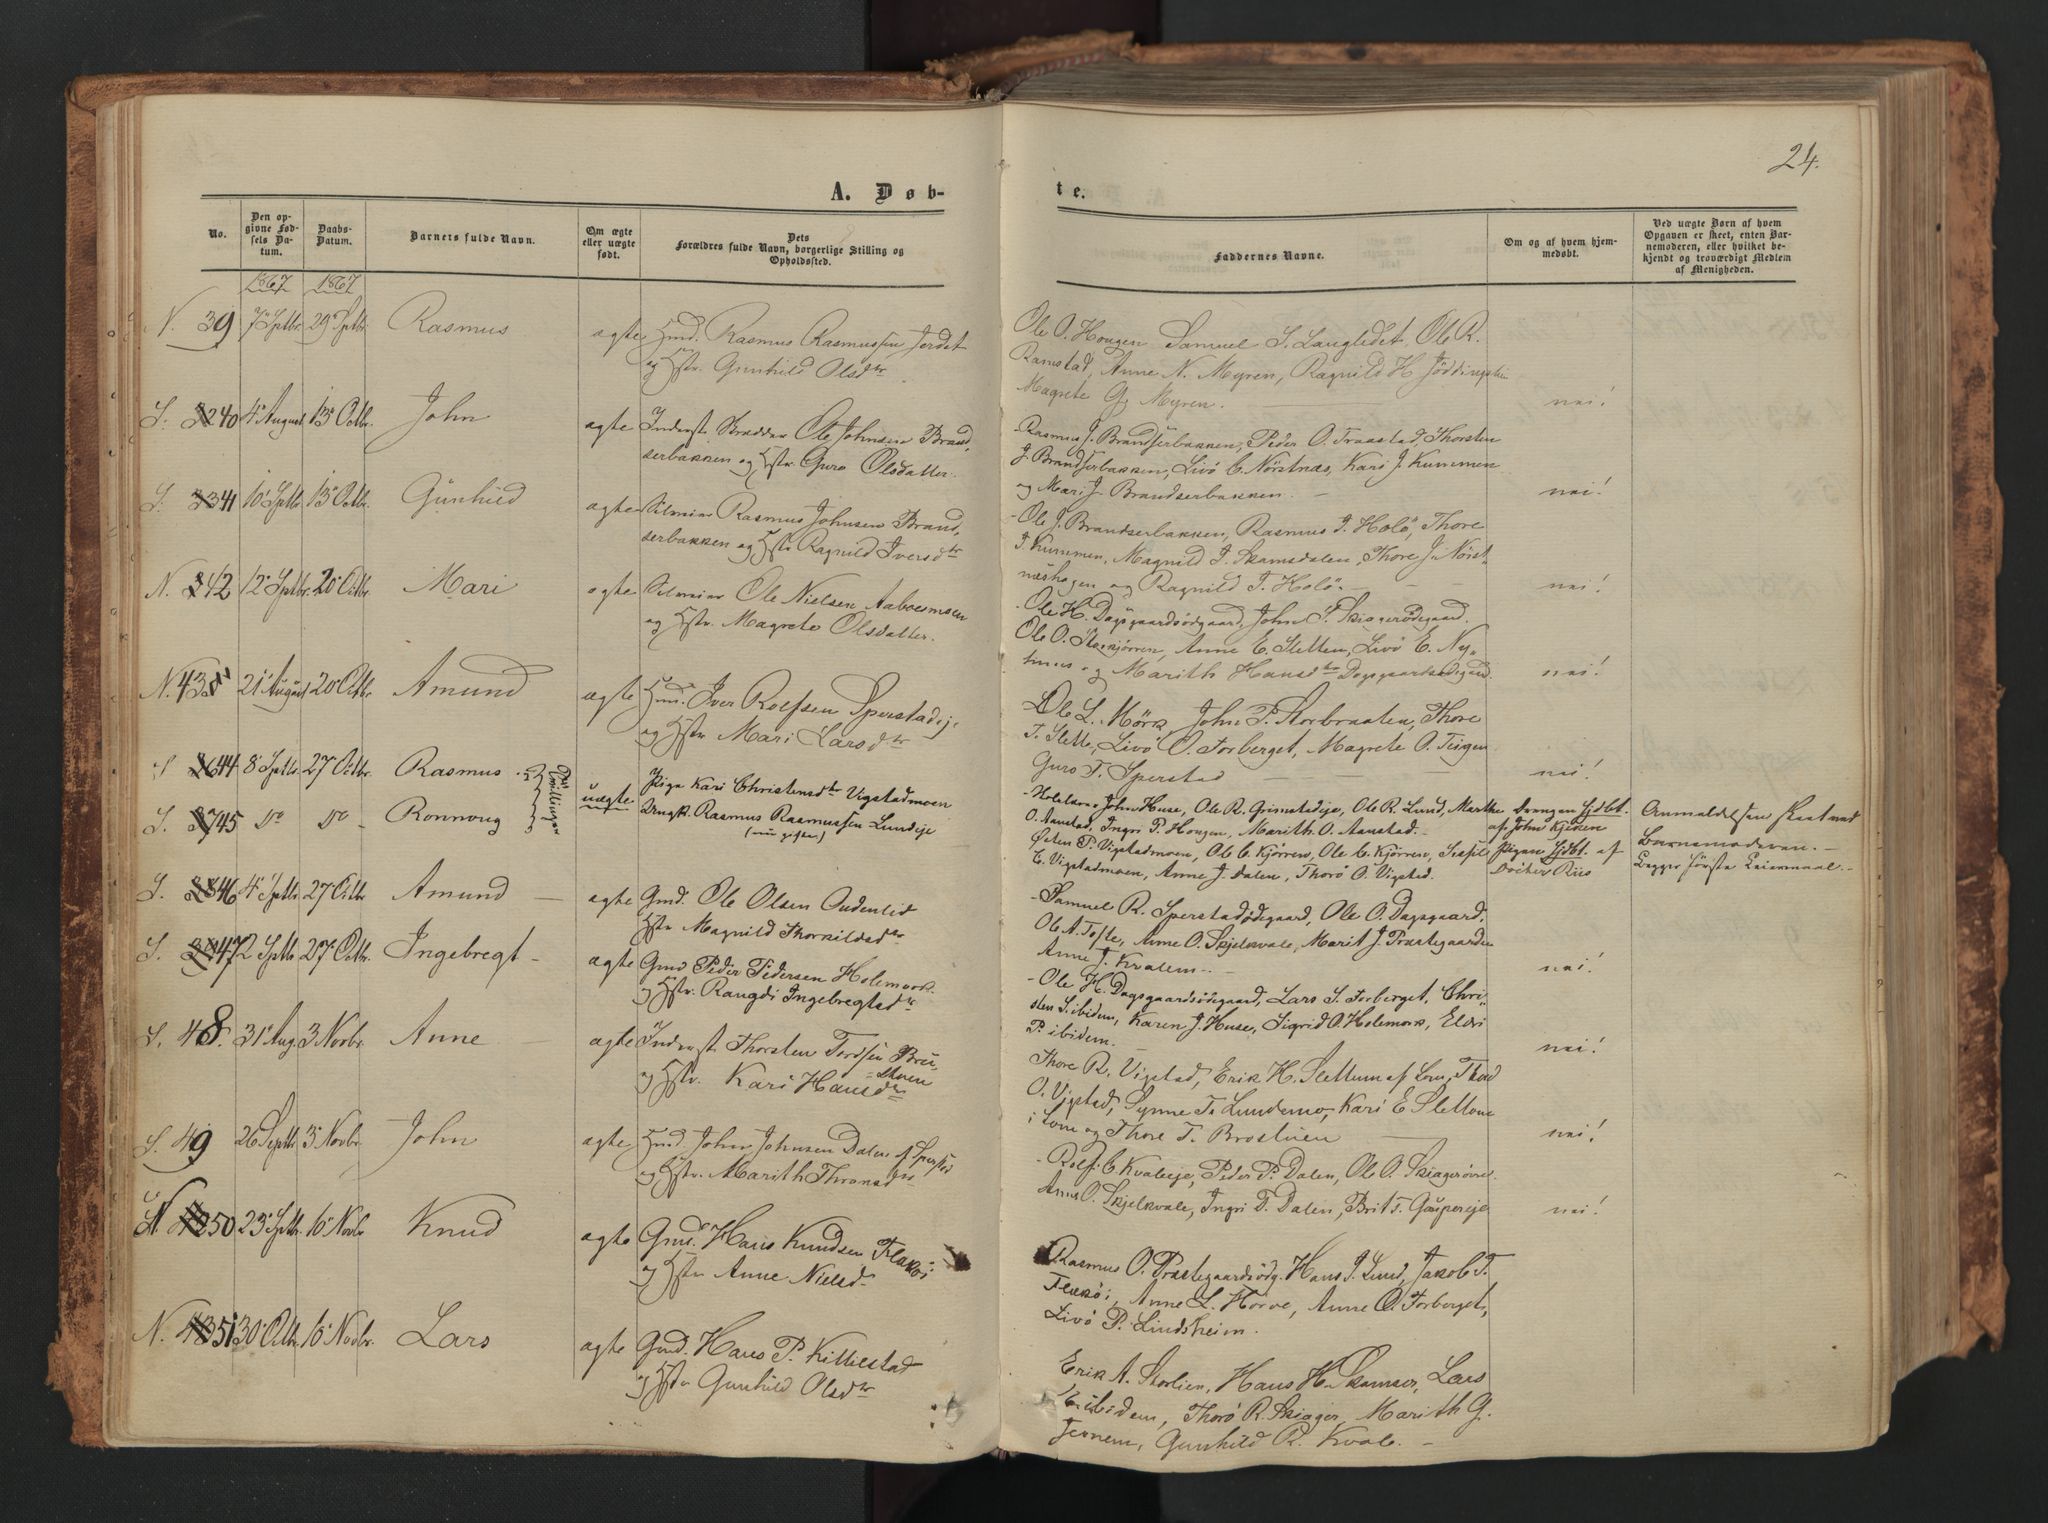 24.
A. Døb-
te.
No.
Den op-
givne Fød-
sels Da-
tum.
Daabs-
Datum.
Barnets fulde Navn.
Om ægte
eller uægte
født.
Dets
Forældres fulde Navn, borgerlige Stilling og
Opholdssted.
Faddernes Navne.
Om og af hvem hjem-
medøbt.
Ved uægte Børn af hvem
Opgaven er skeet, enten Bar-
nemoderen, eller hvilket be-
kjendt og troværdigt Medlem
af Menigheden.
1867 1867
N. 39 7 Septbr. 29 Septbr. Rasmus ægte Gmd. Rasmus Rasmussen Jordet
og Hstr. Gunhild Olsdtr
Ole O. Hougen Samuel S. Laugledet, Ole R.
Ramstad, Anne N. Myren, Ragnild H.
Magrete G. Myren. nei!
S. 40 4 August 13 Octbr. John ægte Inderst Ole Johnsen Brand,
serbakken og Hstr. Guro Olsdatter.
Rasmus J. Brandserbakken, Peder O. Traastad, Thorsten
J. Brandserbakken, Livö C. Nörstnæs, Kari J. Kummen
og Mari J. Brandserbakken. nei!
S. 41 10 Septbr. 13 Octbr. Gunhild ægte Selveier Rasmus Johnsen Brand,
serbakken og Hstr Ragnild Iversdtr
Ole J. Brandserbakken, Rasmus I. Holö, Thore
I. Kummen, Magnild I. Skamsdalen, Thore J. Nörst-
næshagen og Ragnild I. Holö. nei!
N. 42 12 Septbr. 20 Octbr. Mari ægte Selveier Ole Nielsen Aaboemoen
og Hstr. Magrete Olsdatter.
Ole H. Dagsgaardsödgaard, John P. Skiagerödegaard.
Ole O. Storkjörren, Anne E. Sletten, Livö E. Ny-
og Marith Hansdtr Dagsgaardsödgard. nei!
N. 43 21 August 20 Octbr. Amund ægte Gmd. Iver Rolfsen Sperstadeje
og Hstr Mari Larsdtr
Ole L. Mörk, John P. Storbraaten, Thore
T. Slette, Livö O. Forberget, Magrete O. Teigen
Guro T. Sperstad nei!
S 44 8 Septbr. 27 Octbr. Rasmus Tvillinger
S. 45 Do Do Ronnoug uægte
Pige Kari Christensdtr Vigstadmoen
Ungk. Rasmus Rasmussen Lundeje
(nu gift)
John Huse, Ole R. Grimstadeje, Ole R. Lund, Marthe
O. Aanstad, Ingri P. Hougen, Marith O. Aanstad.
Östen P. Vigstadmoen, Ole C. Kjörren, Ole C. Kjörren, Sispil
E. Vigstadmoen, Anne J. Dalen, Thorö O. Vigsted.
Drengen Hjdbt.
af John Kjörren
Pigen Hjdbt. af
Docter Riis
Anmeldelsen skeet ved
Barnemoderen.
Begges förste Leiermaal.
S. 46 4 Septbr 27 Octbr Amund ægte Gmd. Ole Olsen Oudenlid
Hstr Magnild Thorkildsdtr
Samuel R. Sperstadödegaard, Ole O. Dagsgaard,
Ole A. Tofte, Anne O. Skjelkvale, Marit J. Præstegaarden
Anne J. Kvalem. nei!
S. 47 2 Septbr 27 Octbr. Ingebregt ægte Gmd Peder Pedersen Holemork.
og Hstr. Rangdi Ingebregtsdtr
Ole H. Dagsgaardsödegaard, Lars S. Forberget, Chri-
sten S. ibidem, Karen J. Huse, Sigrid O. Holemork, Eldri
P. ibidem. nei!
S. 48. 31 Aug. 3 Novbr. Anne ægte Inderst Thorsten Tordsen Bru-
og Hstr. Kari Hansdtr
Thore R. Vigstad, Erik H. Slettum af Lom, Thord
O. Vigstad, Synne T. Lundemo, Kari E Slettum
i Lom og Thore T. Brostuen nei!
S. 49 26 Septbr 3 Novbr John ægte Gmd. John Johnsen Dalen af Sperstad
og Hstr. Marith Thronsdtr
Rolf C. Kvaleeje, Peder P. Dalen, Ole O. Skiagerövre
Anne O. Skjelkvale, Ingri T. Dalen, Brit S. Gaupereje nei!
N. 50 23 Septbr. 10 Novbr Knud ægte Gmd. Hans Knudsen Flækøi
og Hstr Anne Nielsd.
Rasmus O. Præstegaardsödg. Hans J. Lund, Jakob T.
Flækøi, Anne L. Horve, Anne O. Forberget,
Livö P. Lindsheim.
N. 51 30 Octbr. 10 Novbr. Lars ægte Gmd. Hans P. Killiestad
og Hstr Gunhild Olsdtr
Erik A. Storlien, Hans H. Skamser, Lars
E. ibidem, Thorö R. Skiager, Marith G.
Jernem, Gunhild R. Kvale.